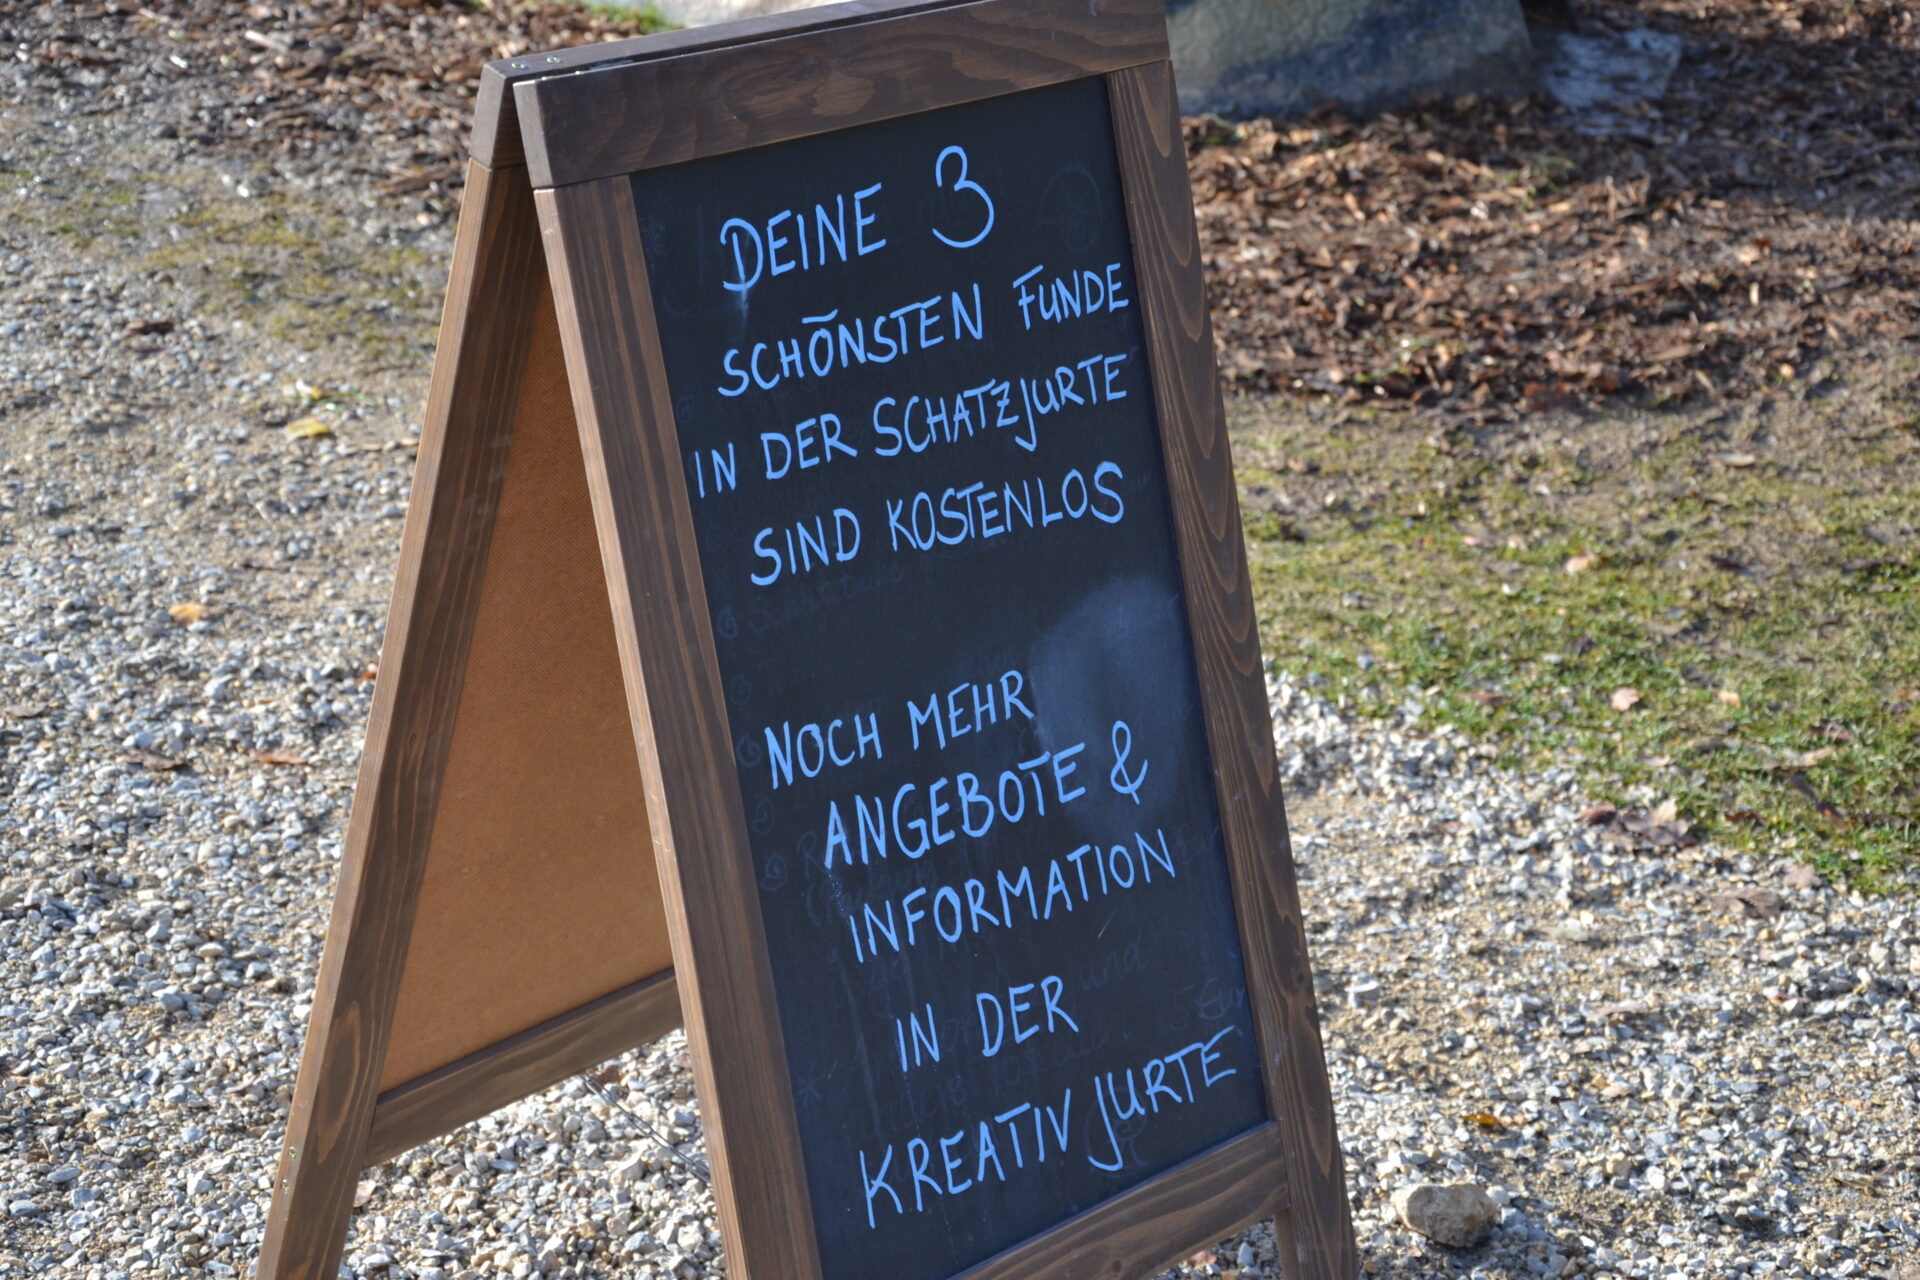 DEINE 3
SCHÖNSTEN FUNDE
IN DER SCHATZJURTE
SIND KOSTENLOS
NOCH MEHR
ANGEBOTE &
INFORMATION
IN DER
KREATIV JURTE